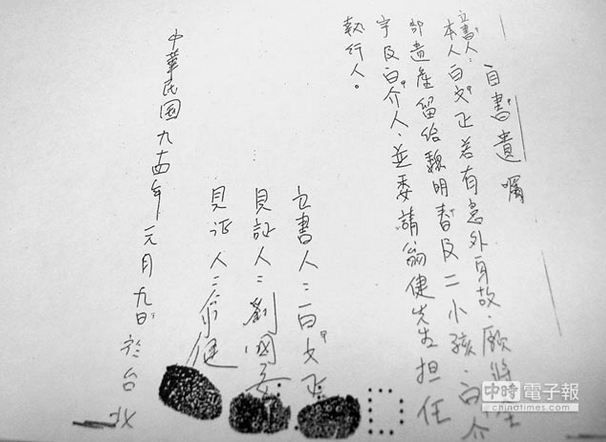 自書遺囑
立書人：
本人白文正若有意外身故，願將全
部遺產留給魏明春及二小孩，白介
宇及白介人，並委請翁健先生担任
執行人。
立書人：白文正
見証人：劉國
見证人：翁健
中華民国九十四年元月九日於台北
中時電子報
chinatimes.com